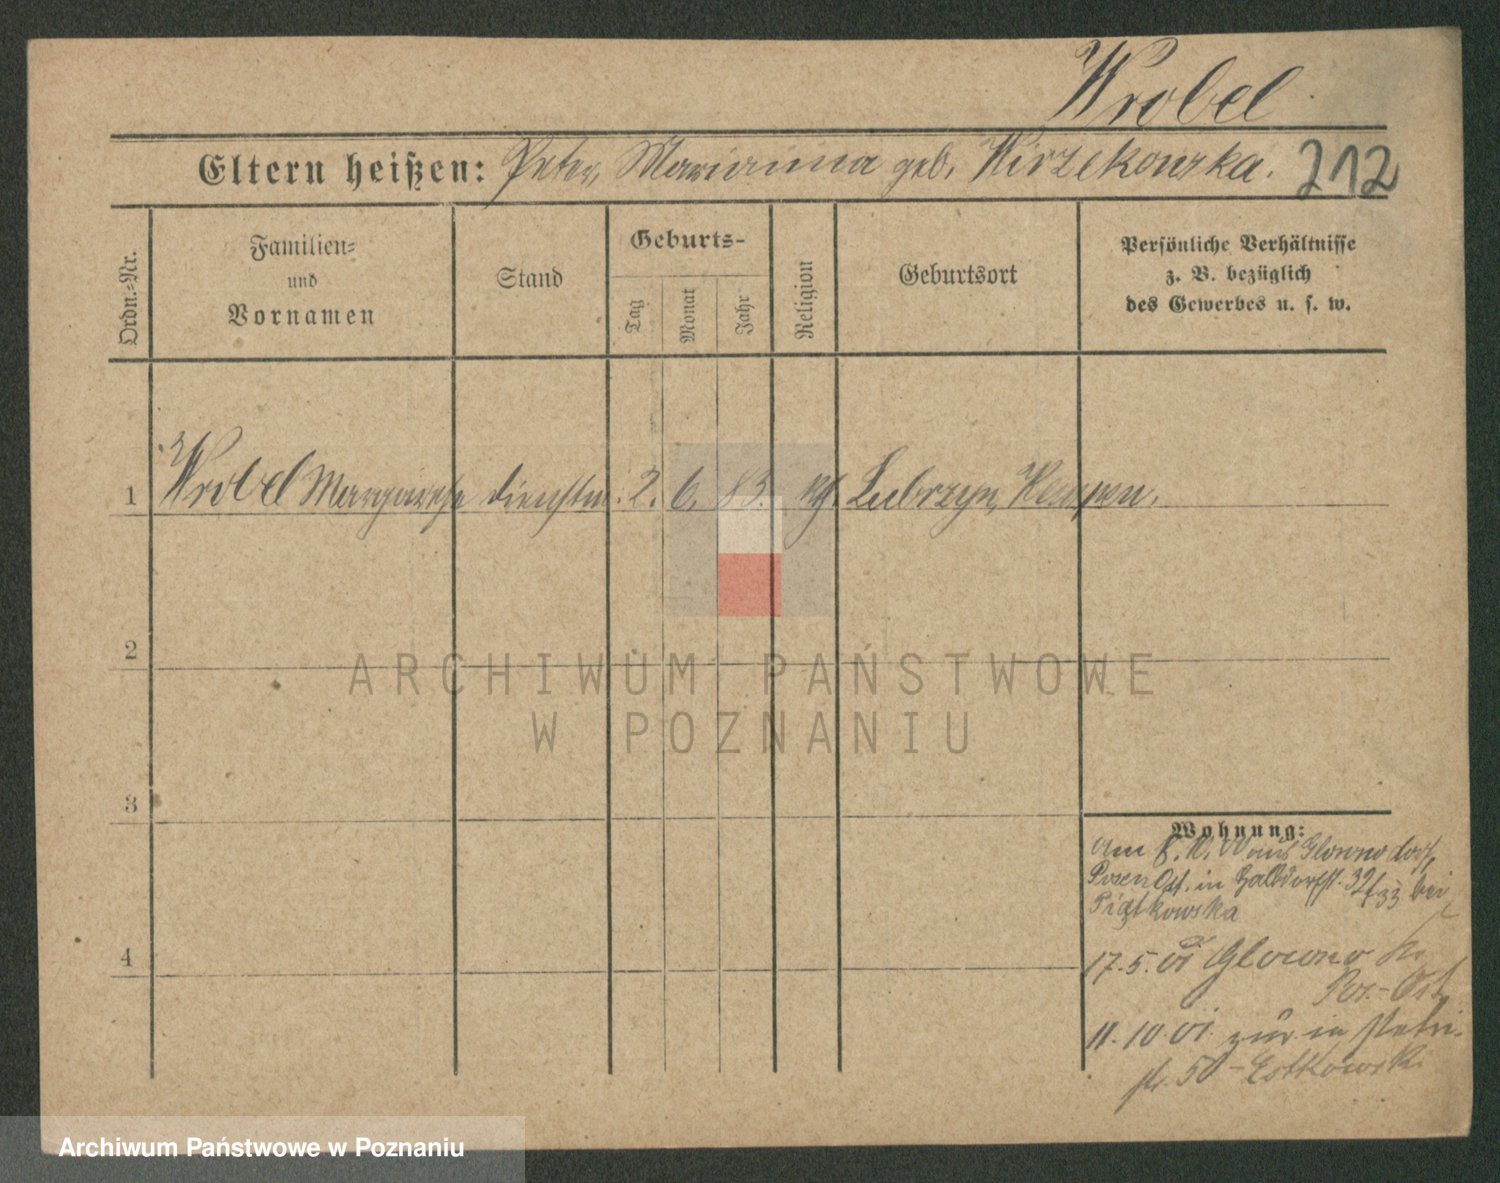 Wrobel
Eltern heißen: Peter, Marianna geb. Wirzekowska. 212
Ordn.-Nr.
Familien-
und
Vornamen
Stand
Geburts-
Tag
Monat
Jahr
Religion
Geburtsort
Persönliche Verhältnisse
z. B. bezüglich
des Gewerbes u. s. w.
1 Wrobel Margarethe dienstm. 2. 6. 83. kf. Lubrzyn, Kempen.
2
ARCHIWUM PAŃSTWOWE
W POZNANIU
3
Wohnung:
am 8. 10. 00 aus Glowno dorf,
Posen Ost. in Halbdorfst. 32/33 bei
Piątkowska
4
17.5.01 Glowno Kr.
Pos.-Ost
11.10.01. zur. in Petri-
str. 50 - Estkowski
Archiwum Państwowe w Poznaniu